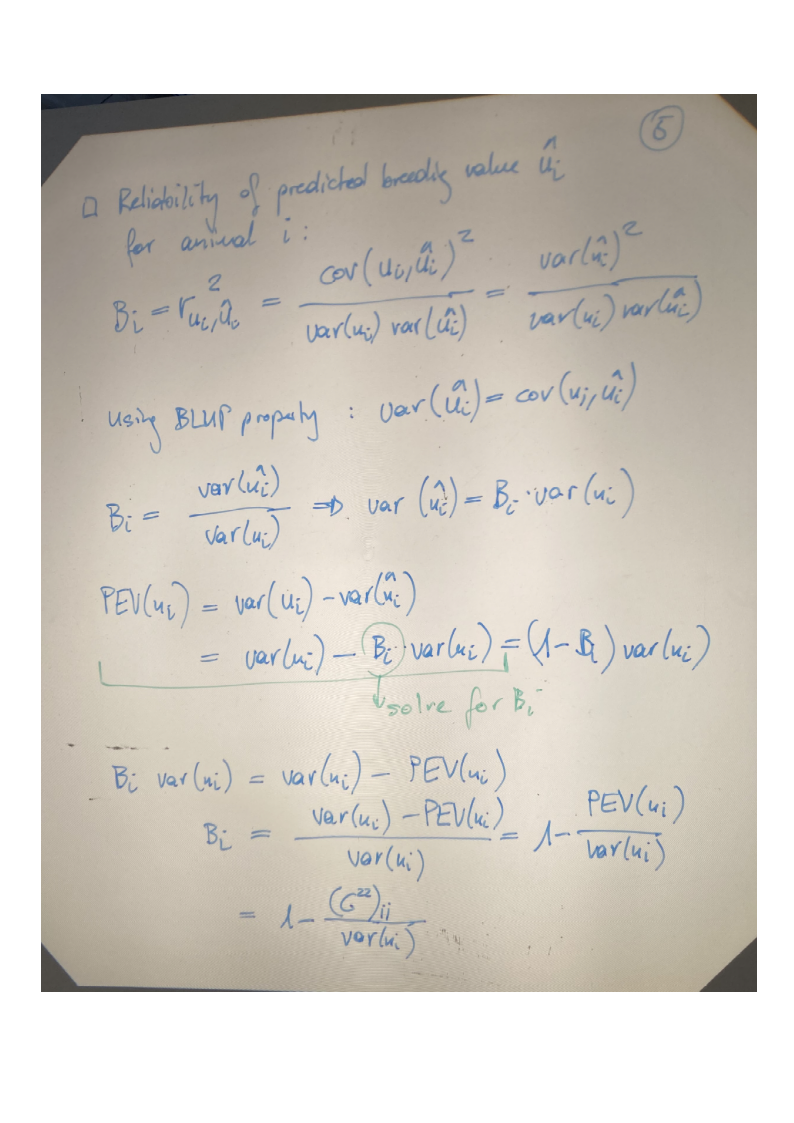 5
□ Reliability of predicted breedig value û_i
for animal i:
B_i = r²_{u_i,û_i} = cov(u_i,û_i)² / (var(u_i) var(û_i)) = var(û_i)² / (var(u_i) var(û_i))
Using BLUP property : var(û_i) = cov(u_i,û_i)
B_i = var(û_i) / var(u_i) ⇒ var(û_i) = B_i · var(u_i)
PEV(u_i) = var(u_i) - var(û_i)
= var(u_i) - B_i · var(u_i) = (1 - B_i) var(u_i)
solve for B_i
B_i var(u_i) = var(u_i) - PEV(u_i)
B_i = (var(u_i) - PEV(u_i)) / var(u_i) = 1 - PEV(u_i) / var(u_i)
= 1 - (C²²)_{ii} / var(u_i)